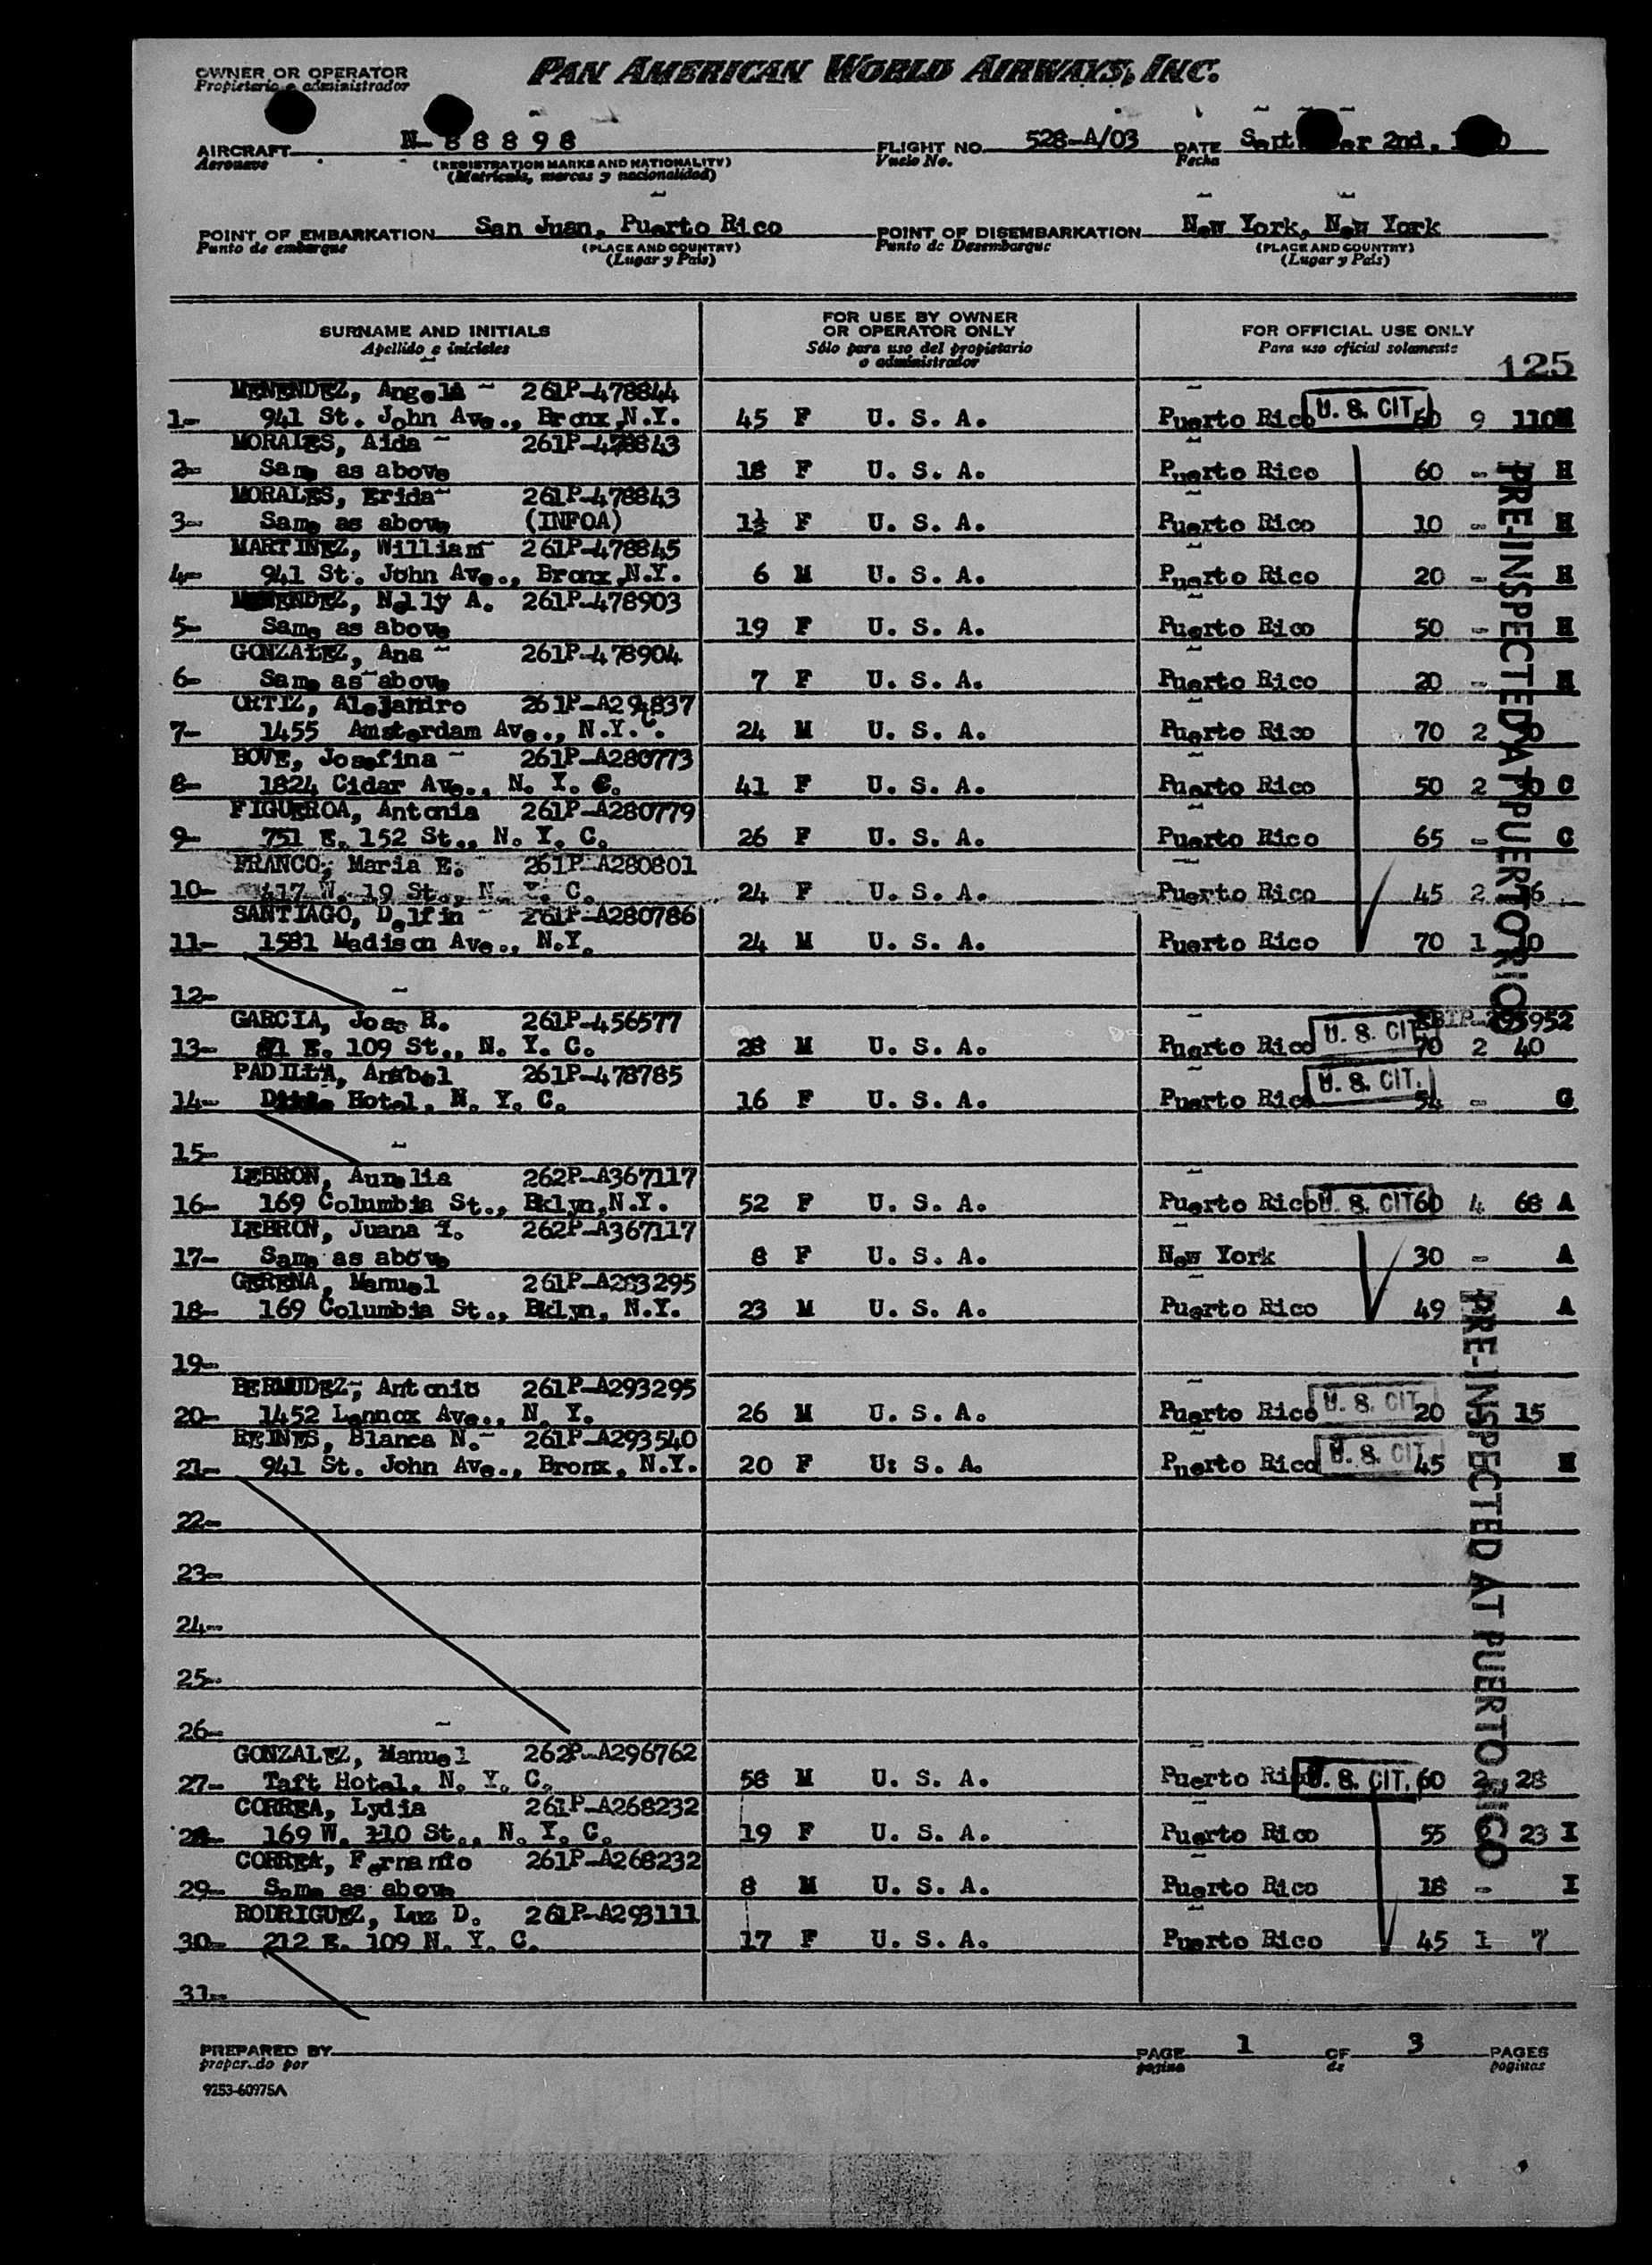 PAN AMERICAN WORLD AIRWAYS, INC.
OWNER OR OPERATOR
Propietario o administrador
AIRCRAFT N-88898 FLIGHT NO. 528-A/03 DATE 2nd,
Aeronave (REGISTRATION MARKS AND NATIONALITY) Vuelo No. Fecha
(Matricula, marcas y nacionalidad)
POINT OF EMBARKATION San Juan, Puerto Rico POINT OF DISEMBARKATION New York, New York
Punto de embarque (PLACE AND COUNTRY) Punto de Desembarque (PLACE AND COUNTRY)
(Lugar y País) (Lugar y País)
SURNAME AND INITIALS FOR USE BY OWNER OR OPERATOR ONLY FOR OFFICIAL USE ONLY
Apellido e iniciales Sólo para uso del propietario o administrador Para uso oficial solamente
125
MENENDEZ, Angela 261P-478844
1- 941 St. John Ave., Bronx, N.Y. 45 F U. S. A. Puerto Rico U. S. CIT. 60 9 110 H
MORALES, Aida 261P-478843
2- Same as above 18 F U. S. A. Puerto Rico 60 - H
MORALES, Erida 261P-478843
3- Same as above (INFOA) 1½ F U. S. A. Puerto Rico 10 - H
MARTINEZ, William 261P-478845
4- 941 St. John Ave., Bronx, N.Y. 6 M U. S. A. Puerto Rico 20 - H
MENENDEZ, Nelly A. 261P-478903
5- Same as above 19 F U. S. A. Puerto Rico 50 - H
GONZALEZ, Ana 261P-478904
6- Same as above 7 F U. S. A. Puerto Rico 20 - H
ORTIZ, Alejandro 261P-A294837
7- 1455 Amsterdam Ave., N.Y. 24 M U. S. A. Puerto Rico 70 2
BOVE, Josefina 261P-A280773
8- 1824 Cidar Ave., N. Y. C. 41 F U. S. A. Puerto Rico 50 2 C
FIGUEROA, Antonia 261P-A280779
9- 751 E. 152 St., N. Y. C. 26 F U. S. A. Puerto Rico 65 - C
FRANCO, Maria E. 261P-A280801
10- 417 W. 19 St., N. Y. C. 24 F U. S. A. Puerto Rico 45 2
SANTIAGO, Delfin 261P-A280786
11- 1581 Madison Ave., N.Y. 24 M U. S. A. Puerto Rico 70 1
PRE-INSPECTED AT PUERTO RICO
12-
GARCIA, Jose R. 261P-456577
13- E. 109 St., N. Y. C. 28 M U. S. A. Puerto Rico U. S. CIT. 70 2 40
PADILLA, Anabel 261P-478785
14- Hotel, N. Y. C. 16 F U. S. A. Puerto Rico U. S. CIT. 54 - G
15-
LEBRON, Aurelia 262P-A367117
16- 169 Columbia St., Bklyn, N.Y. 52 F U. S. A. Puerto Rico U. S. CIT 60 4 68 A
LEBRON, Juana Y. 262P-A367117
17- Same as above 8 F U. S. A. New York 30 - A
GERENA, Manuel 261P-A293295
18- 169 Columbia St., Bklyn, N.Y. 23 M U. S. A. Puerto Rico 49 A
19-
BERMUDEZ, Antonio 261P-A293295
20- 1452 Lennox Ave., N. Y. 26 M U. S. A. Puerto Rico U. S. CIT. 20 15
REINES, Blanca N. 261P-A293540
21- 941 St. John Ave., Bronx, N.Y. 20 F U: S. A. Puerto Rico U. S. CIT 45 H
PRE-INSPECTED AT PUERTO RICO
22-
23-
24-
25-
26-
GONZALEZ, Manuel 262P-A296762
27- Taft Hotel, N. Y. C. 58 M U. S. A. Puerto Rico U. S. CIT. 60 2 28
CORREA, Lydia 261P-A268232
28- 169 W. 110 St., N. Y. C. 19 F U. S. A. Puerto Rico 55 23 I
CORREA, Fernando 261P-A268232
29- Same as above 8 M U. S. A. Puerto Rico 18 - I
RODRIGUEZ, Luz D. 261P-A293111
30- 212 E. 109 N. Y. C. 17 F U. S. A. Puerto Rico 45 1 7
31-
PREPARED BY PAGE 1 OF 3 PAGES
preparado por pagina de paginas
9253-60975A